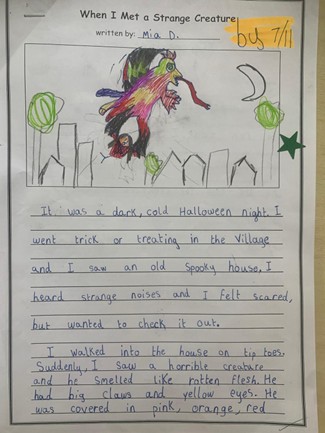 When I Met a Strange Creature
written by: Mia D.
by 7/11
It was a dark, cold Halloween night. I
went trick or treating in the Village
and I saw an old Spooky house. I
heard strange noises and I felt scared,
but wanted to check it out.
I walked into the house on tip toes.
Suddenly, I saw a horrible creature
and he smelled like rotten flesh. He
had big claws and yellow eyes. He
was covered in pink, orange, red